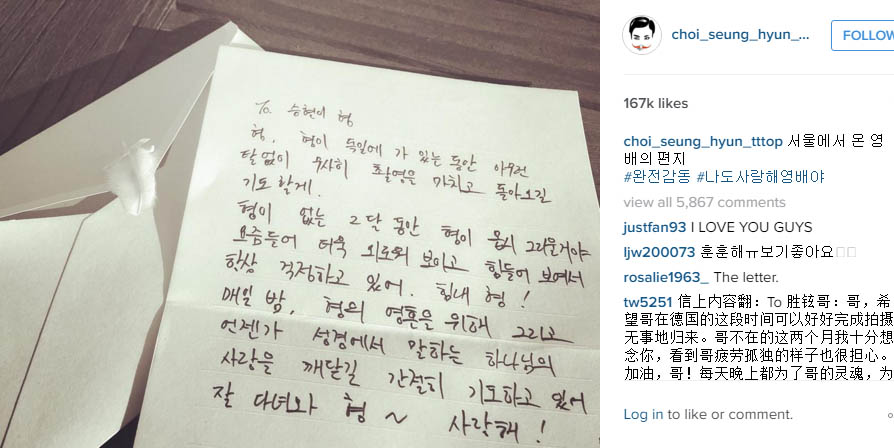 To 승현이 형
형, 형이 독일에 가 있는 동안 아무런
탈 없이 무사히 촬영을 마치고 돌아오길
기도할게.
형이 없는 2달 동안 형이 몹시 그리울거야
요즘들어 더욱 외로워 보이고 힘들어 보여서
항상 걱정하고 있어. 힘내 형!
매일 밤, 형의 영혼을 위해 그리고
언젠가 성경에서 말하는 하나님의
사랑을 깨닫길 간절히 기도하고 있어
잘 다녀와 형 ~ 사랑해!
choi_seung_hyun_...
FOLLOW
167k likes
choi_seung_hyun_tttop 서울에서 온 영
배의 편지
#완전감동 #나도사랑해영배야
view all 5,867 comments
justfan93 I LOVE YOU GUYS
ljw200073 훈훈해ㅠ보기좋아요
rosalie1963_ The letter.
tw5251 信上内容翻：To 胜铉哥：哥，希
望哥在德国的这段时间可以好好完成拍摄
无事地归来。哥不在的这两个月我十分想
念你，看到哥疲劳孤独的样子也很担心。
加油，哥！每天晚上都为了哥的灵魂，为
Log in to like or comment.